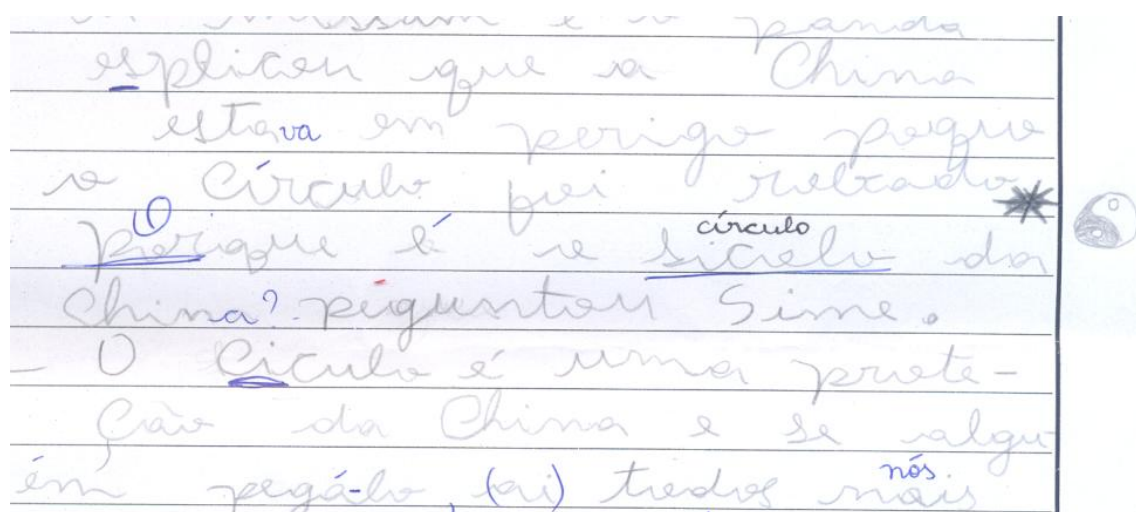 e o panda
esplicou que a China
estava em perigo poque
o Círculo foi roubado
O
porque é o círculo sicolo da
China? piguntou Sime.
- O Ciculo é uma prote-
ção da China e se algu-
ém pegá-lo, (ai) todos nós nais